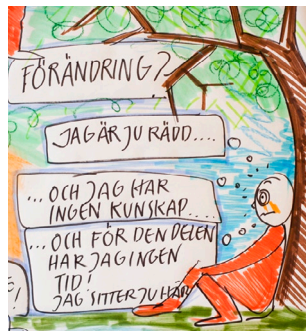 FÖRÄNDRING?
JAG ÄR JU RÄDD....
... OCH JAG HAR
INGEN KUNSKAP....
... OCH FÖR DEN DELEN
HAR JAG INGEN
TID!
JAG SITTER JU HÄR
!